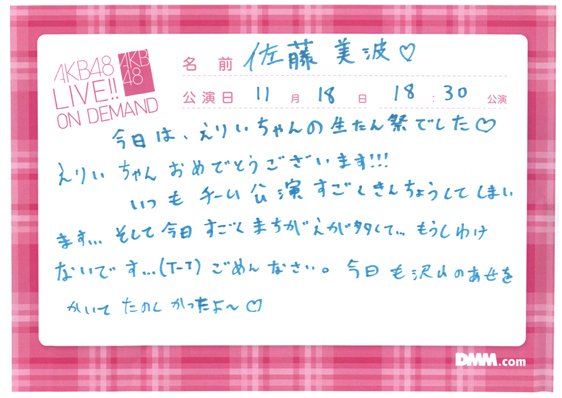 AKB48
LIVE!!
ON DEMAND
AKB
48
名 前 佐藤美波♡
公演日 11 月 18 日 18 : 30 公演
今日は、えりいちゃんの生たん祭でした♡
えりい ちゃん おめでとうございます!!!
いつも チーム 公演 すごくきんちょうしてしまい
ます... そして今日 すごく まちがえが多くて... もうしわけ
ないです...(T-T) ごめんなさい。 今日も沢山のあせを
かいて たのしかったよ〜♡
DMM.com